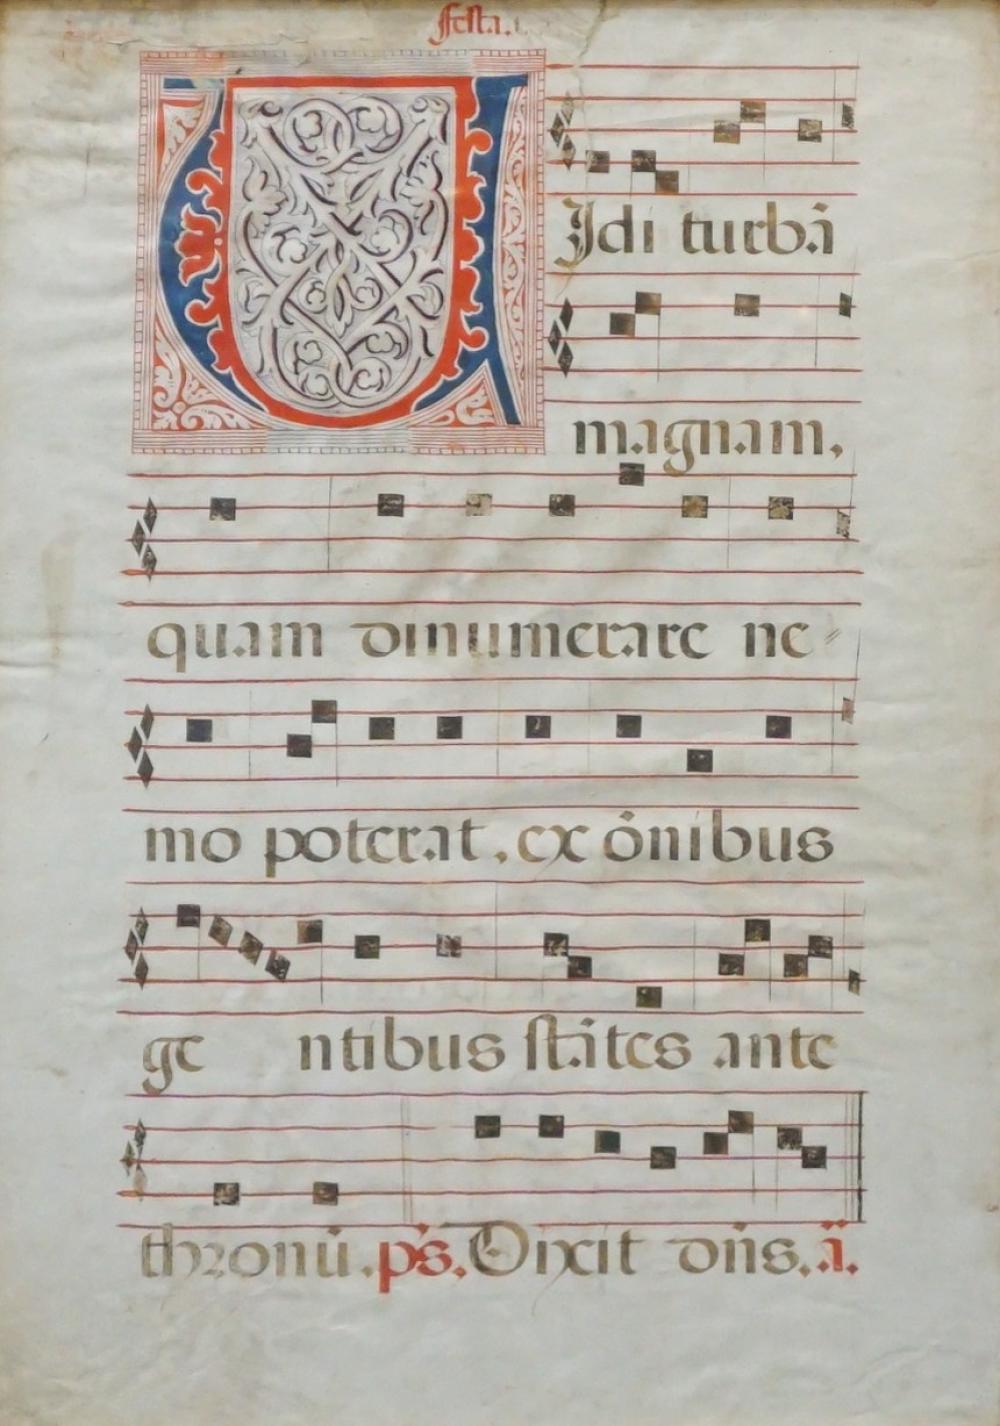 festa.
VJdi turbā
magnam,
quam dinumerare ne⸗
mo poterat, ex ōnibus
ge ntibus stātes ante
thronū. ps. Dixit dn̄s. ā.